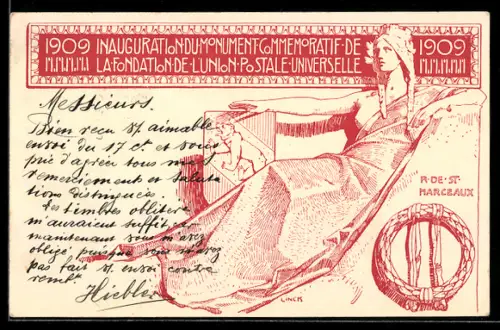 1909 INAUGURATION·DU·MONUMENT·COMMEMORATIF·DE 1909
LA·FONDATION·DE·L'UNION·POSTALE·UNIVERSELLE
Messieurs.
Bien reçu Vt aimable
envoi du 17 ct et vous
prie d'agréer tous mes
remerciement et saluta
tions distinguées.
Les timbres oblitér
m'auraient suffit, et
maintenant vous m'avez
obligé puisque vous n'avez
pas fait Vt envoi contre
remb.t
Hiebler
R·DE·ST
MARCEAUX
LINCK